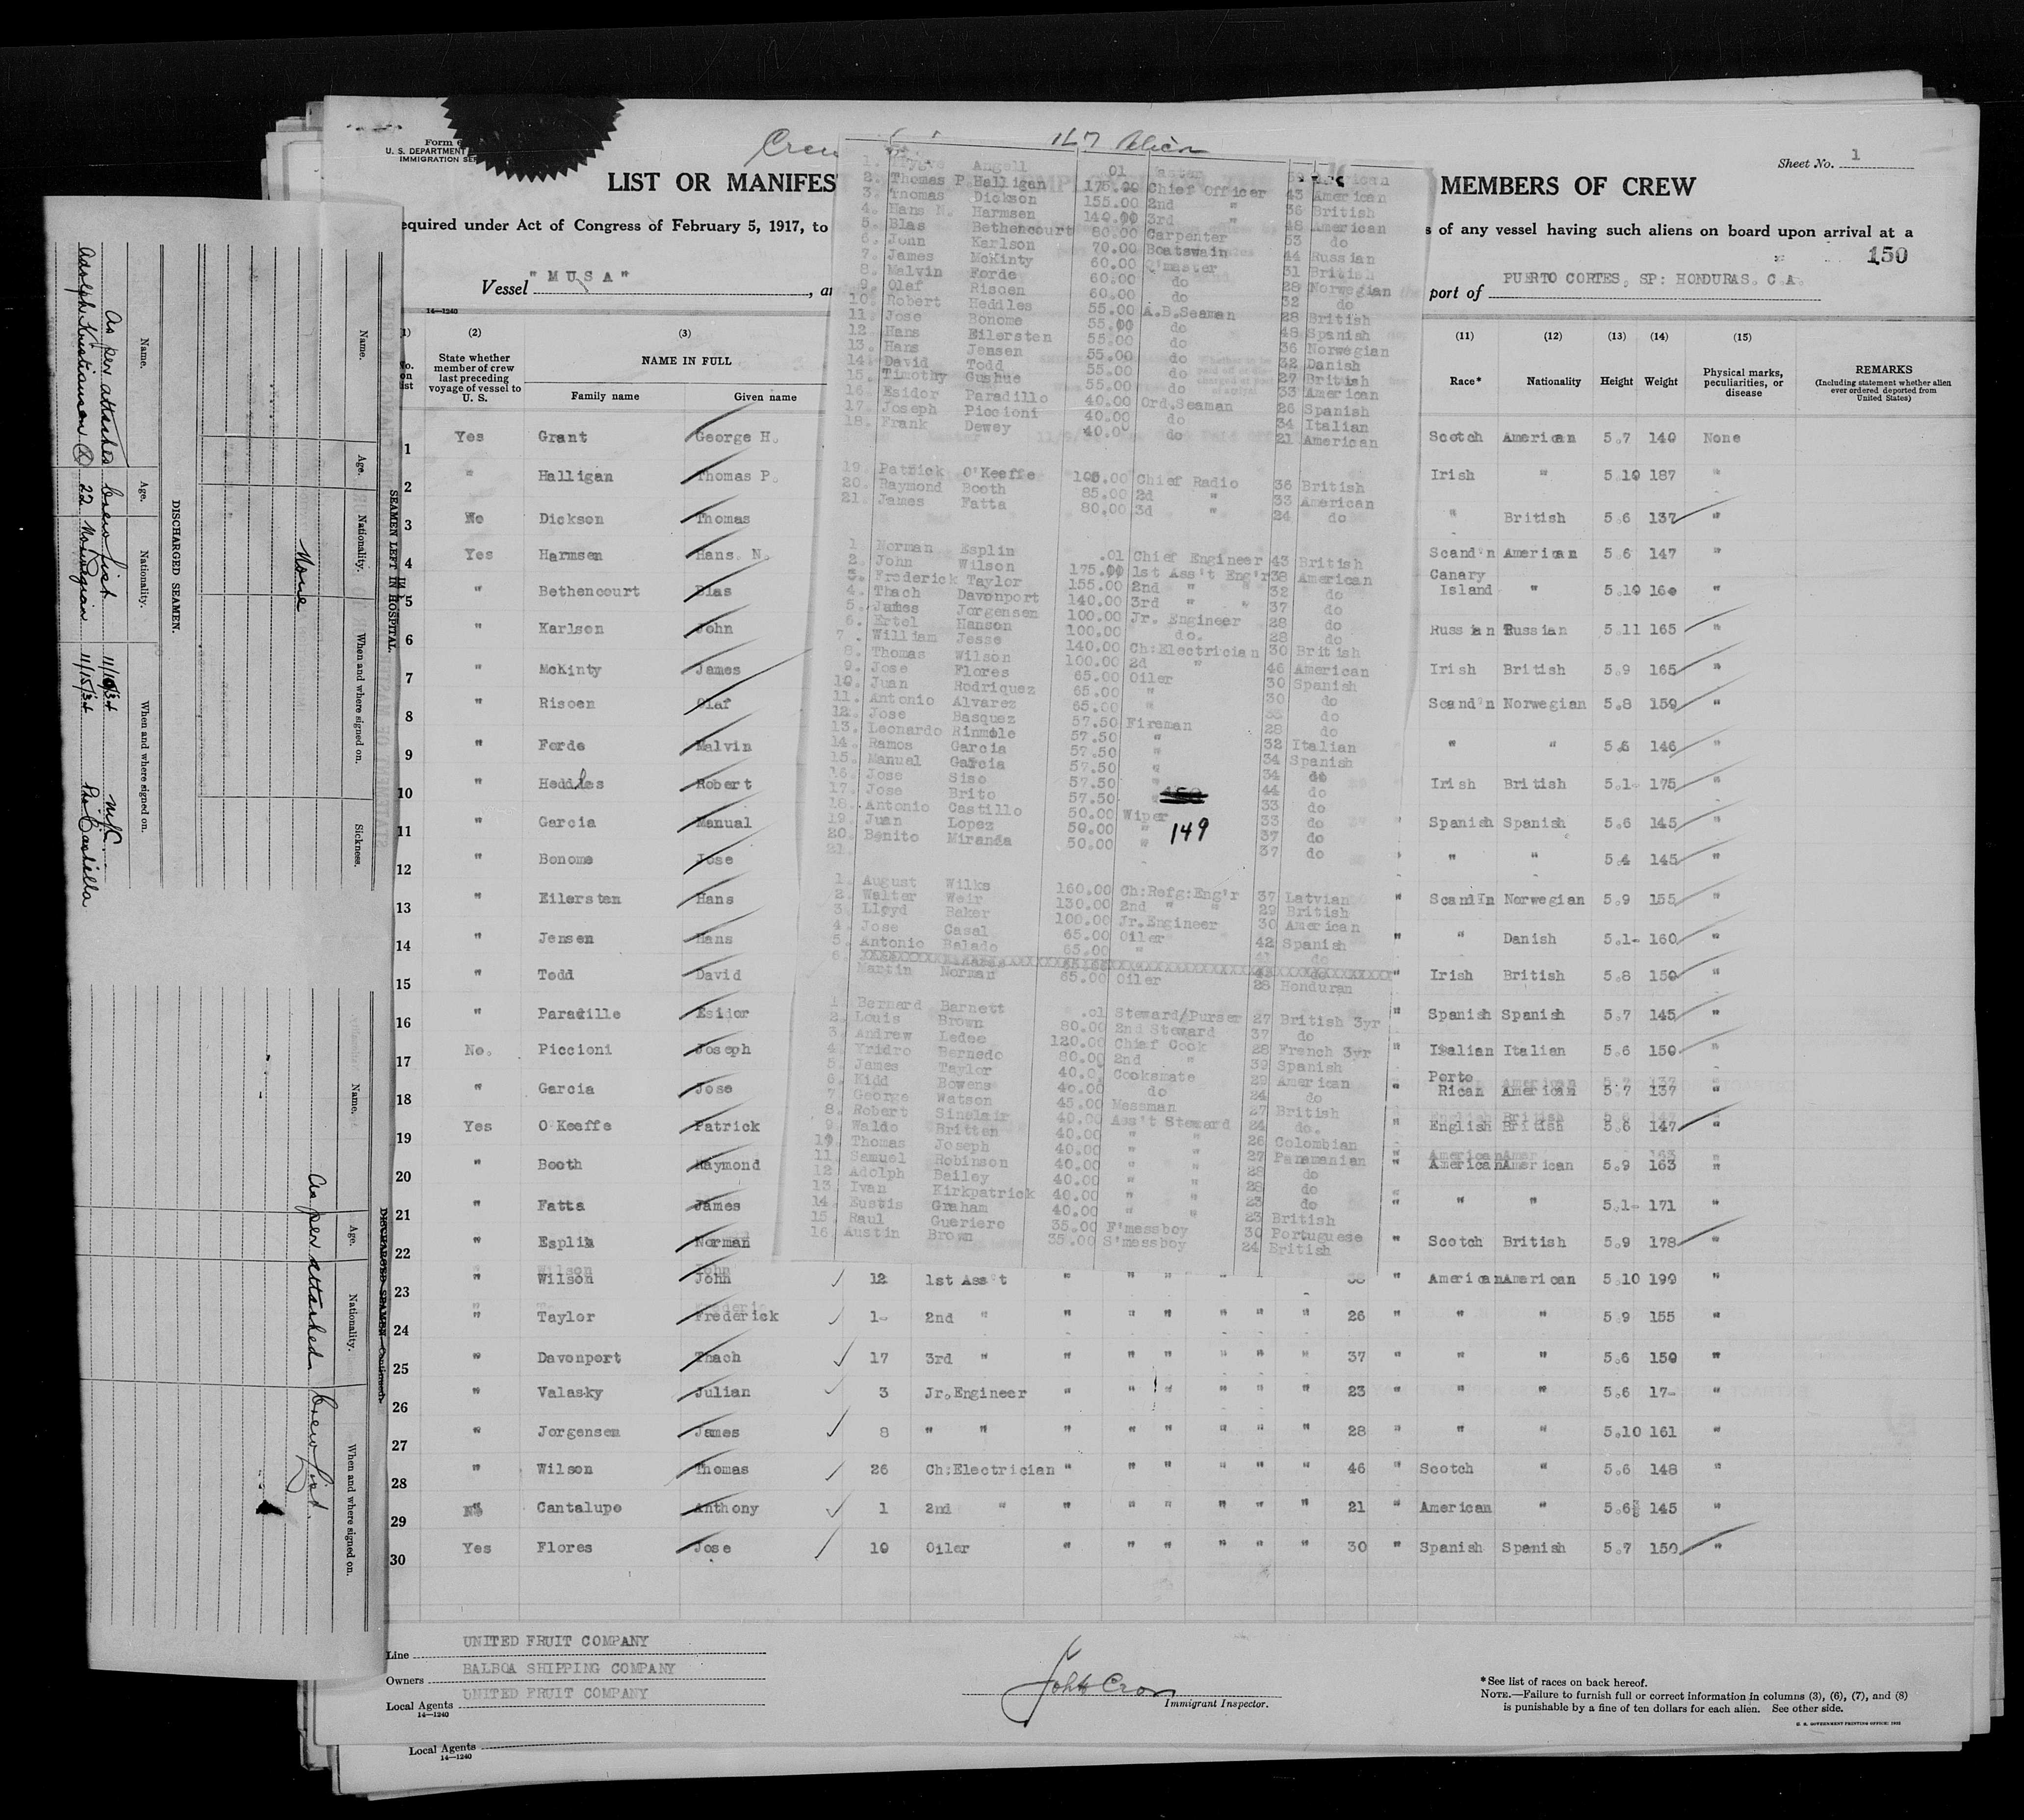 Form
U. S. DEPARTMENT
IMMIGRATION SER
Crew
147 Alien
Sheet No. 1
LIST OR MANIFES
MEMBERS OF CREW
equired under Act of Congress of February 5, 1917, to
s of any vessel having such aliens on board upon arrival at a
150
Vessel "MUSA", a
port of PUERTO CORTES, SP: HONDURAS. C.A.
14—1240
(2) (3) (11) (12) (13) (14) (15)
State whether member of crew last preceding voyage of vessel to U. S.
NAME IN FULL
Family name Given name
Race* Nationality Height Weight Physical marks, peculiarities, or disease
REMARKS
(Including statement whether alien ever ordered deported from United States)
1 Yes Grant George H. Scotch American 5.7 140 None
2 " Halligan Thomas P. Irish " 5.10 187 "
3 No Dickson Thomas " British 5.6 137 "
4 Yes Harmsen Hans. N. Scand'n American 5.6 147 "
5 " Bethencourt Blas Canary Island " 5.10 160 "
6 " Karlson John Russian Russian 5.11 165 "
7 " McKinty James Irish British 5.9 165 "
8 " Risoen Olaf Scand'n Norwegian 5.8 150 "
9 " Forde Malvin " " 5.6 146 "
10 " Heddles Robert Irish British 5.1- 175 "
11 " Garcia Manual Spanish Spanish 5.6 145 "
12 " Bonome Jose " " 5.4 145 "
13 " Eilersten Hans Scand'n Norwegian 5.9 155 "
14 " Jensen Hans " Danish 5.1- 160 "
15 " Todd David Irish British 5.8 150 "
16 " Paradille Esidor Spanish Spanish 5.7 145 "
17 No. Piccioni Joseph Italian Italian 5.6 150 "
18 " Garcia Jose Porto Rican American 5.7 137 "
19 Yes O'Keeffe Patrick English British 5.6 147 "
20 " Booth Raymond American American 5.9 163 "
21 " Fatta James " " 5.1- 171 "
22 " Esplin Norman Scotch British 5.9 178 "
23 " Wilson John 12 1st Ass't " " " " " " 38 " American American 5.10 190 "
24 " Taylor Frederick 1- 2nd " " " " " " " 26 " " " 5.9 155 "
25 " Davonport Thach 17 3rd " " " " " " " 37 " " " 5.6 150 "
26 " Valasky Julian 3 Jr.Engineer " " " " " " 23 " " " 5.6 17- "
27 " Jorgensem James 8 " " " " " " " " 28 " " " 5.10 161 "
28 " Wilson Thomas 26 Ch:Electrician " " " " " " 46 " Scotch " 5.6 148 "
29 No Cantalupe Anthony 1 2nd " " " " " " " 21 " American " 5.6 145 "
30 Yes Flores Jose 10 Oiler " " " " " " 30 " Spanish Spanish 5.7 150 "
1. Angell 01 Master
2. Thomas P. Halligan 175.00 Chief Officer 43 American
3. Thomas Dickson 155.00 2nd " 36 British
4. Hans N. Harmsen 140.00 3rd " 48 American
5. Blas Bethencourt 80.00 Carpenter 53 do
6. John Karlson 70.00 Boatswain 44 Russian
7. James McKinty 60.00 Q'master 31 British
8. Malvin Forde 60.00 do 28 Norwegian
9. Olaf Risoen 60.00 do 32 do
10. Robert Heddles 55.00 A.B.Seaman 28 British
11. Jose Bonome 55.00 do 48 Spanish
12. Hans Eilersten 55.00 do 36 Norwegian
13. Hans Jensen 55.00 do 32 Danish
14. David Todd 55.00 do 27 British
15. Timothy Gushue 55.00 do 33 American
16. Esidor Paradillo 40.00 Ord.Seaman 26 Spanish
17. Joseph Piccioni 40.00 do 34 Italian
18. Frank Dewey 40.00 do 21 American
19. Patrick O'Keeffe 105.00 Chief Radio 36 British
20. Raymond Booth 85.00 2d " 33 American
21. James Fatta 80.00 3d " 24 do
1 Norman Esplin .01 Chief Engineer 43 British
2. John Wilson 175.00 1st Ass't Eng'r 38 American
3. Frederick Taylor 155.00 2nd " " 32 do
4. Thach Davonport 140.00 3rd " " 37 do
5. James Jorgensem 100.00 Jr. Engineer 28 do
6. Ertel Hanson 100.00 do. 28 do
7. William Jesse 140.00 Ch:Electrician 30 British
8. Thomas Wilson 100.00 2d " 46 American
9. Jose Flores 65.00 Oiler 30 Spanish
10. Juan Rodriquez 65.00 " 30 do
11. Antonio Alvarez 65.00 " do
12. Jose Basquez 57.50 Fireman 28 do
13. Leonardo Rinmole 57.50 " 32 Italian
14. Ramos Garcia 57.50 " 34 Spanish
15. Manual Garcia 57.50 " 34 do
16. Jose Siso 57.50 " 44 do
17. Jose Brito 57.50 " 33 do
18. Antonio Castillo 50.00 Wiper 33 do
19. Juan Lopez 50.00 " 37 do
20. Benito Miranda 50.00 " 37 do
21.
149
1. August Wilks 160.00 Ch:Refg:Eng'r 37 Latvian
2. Walter Weir 130.00 2nd " " 29 British
3. Lloyd Baker 100.00 Jr.Engineer 30 American
4. Jose Casal 65.00 Oiler 42 Spanish
5. Antonio Balado 65.00 " 41 do
6. Martin Norman 65.00 Oiler 28 Honduran
1 Bernard Barnett .01 Steward/Purser 27 British 3yr
2. Louis Brown 80.00 2nd Steward 37 do
3. Andrew Ledee 120.00 Chief Cook 28 French 3yr
4. Yridro Bernedo 80.00 2nd " 39 Spanish
5. James Taylor 40.0 Cooksmate 29 American
6. Kidd Bowens 40.00 do 24 do
7. George Watson 45.00 Messman 27 British
8. Robert Sinclair 40.00 Ass't Steward 24 do.
9. Waldo Britten 40.00 " " 26 Colombian
10. Thomas Joseph 40.00 " " 27 Panamanian
11. Samuel Robinson 40.00 " " 28 do
12 Adolph Bailey 40.00 " " 28 do
13 Ivan Kirkpatrick 40.00 " " 23 do
14 Eustis Graham 40.00 " " 23 British
15. Raul Gueriero 35.00 F'messboy 30 Portuguese
16. Austin Brown 35.00 S'messboy 24 British
Line UNITED FRUIT COMPANY
Owners BALBOA SHIPPING COMPANY
Local Agents UNITED FRUIT COMPANY
14—1240
John Cron
Immigrant Inspector.
*See list of races on back hereof.
NOTE.—Failure to furnish full or correct information in columns (3), (6), (7), and (8)
is punishable by a fine of ten dollars for each alien. See other side.
U. S. GOVERNMENT PRINTING OFFICE: 1932
Local Agents
14—1240
SEAMEN LEFT IN HOSPITAL.
Name. Age. Nationality. When and where signed on. Sickness.
None
DISCHARGED SEAMEN.
Name. Age. Nationality. When and where signed on.
As per attached Crew list 11/10/34 N.Y.
Adolph Kristiansen 22 Norwegian 11/15/34 Pto Castilla
DISCHARGED SEAMEN—Continued.
Name. Age. Nationality. When and where signed on.
As per attached Crew list.